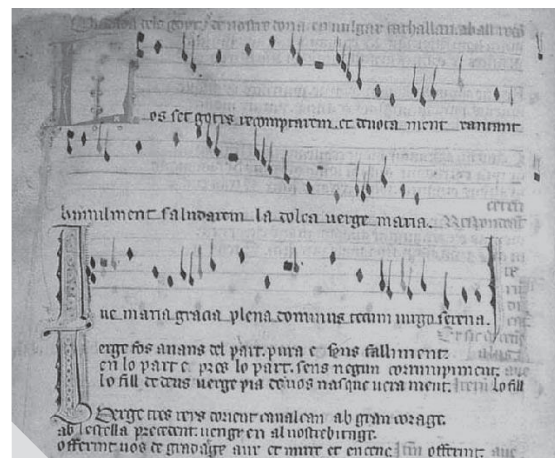 Ballada dels goytx de nostre dona en vulgar cathallan. a ball redo
Los set gotxs recomptarem et devotament xantant
humilment saludarem la dolça verge maria.
Ave maria gracia plena dominus tecum virgo serena.
Verge fos anans del part. pura e sens falliment.
en lo part e pres lo part. sens negun corrumpiment.
lo fill de deus verge pia de vos nasque verament. Item lo fill
Verge tres reys dorient cavalcan ab gran coratge
ab lestella precedent. vengren al vostrebitatge.
offerint vos de gradatge aur et mirre et encenc. Item offerint. ave